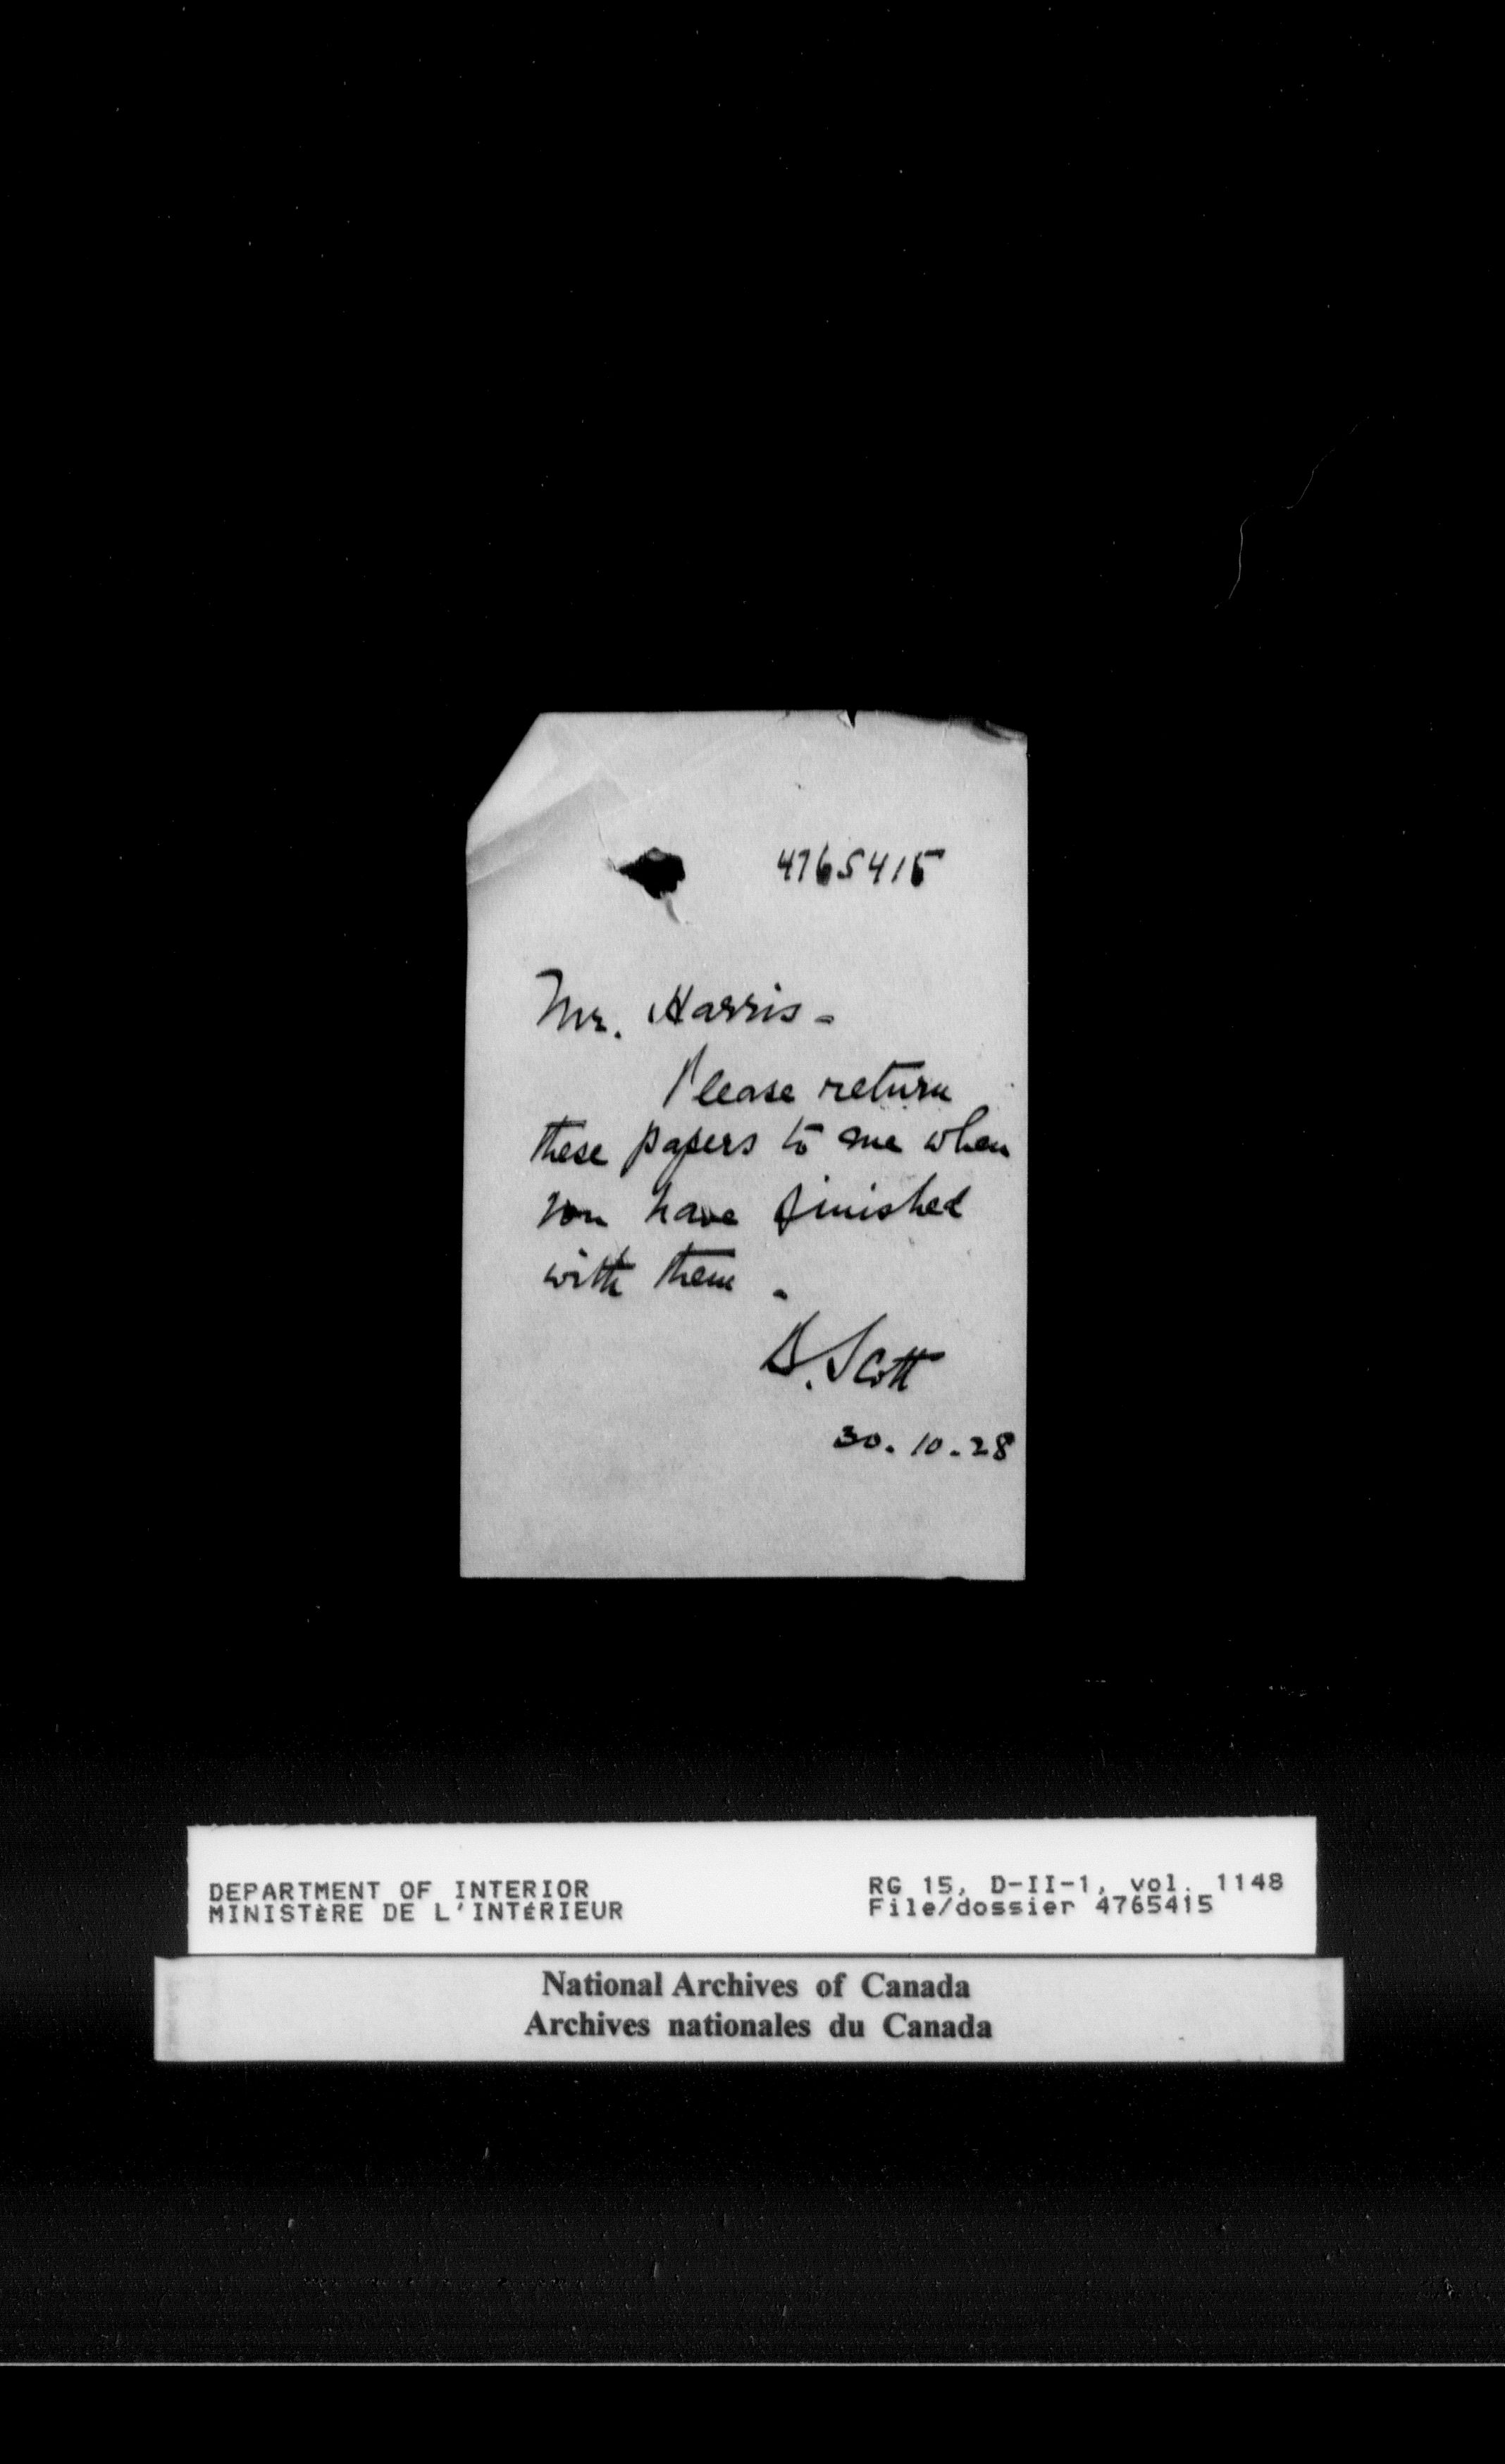 4765415
Mr. Harris -
Please return
these papers to me when
you have finished
with them.
D. Scott
30.10.28
DEPARTMENT OF INTERIOR
MINISTÈRE DE L'INTÉRIEUR
RG 15, D-II-1, vol. 1148
File/dossier 4765415
National Archives of Canada
Archives nationales du Canada